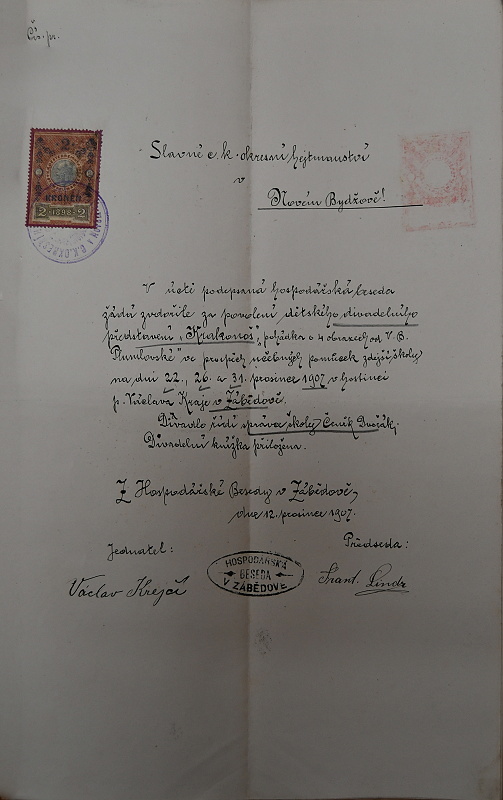 Čís. pr.
Slavné c. k. okresní hejtmanství
v
Novém Bydžově!
2
KRONEN
2 1898 2
V úctě podepsaná hospodářská beseda
žádá zdvořile za povolení dětského divadelního
představení „Krakonoš“, pohádka o 4 obrazech od V. B.
Plumlovské ve prospěch učebných pomůcek zdejší školy,
na dni 22., 26. a 31. prosince 1907 v hostinci
p. Václava Kraje v Zábědově.
Divadlo řídí správce školy Čeněk Dvořák.
Divadelní knížka přiložena.
Z Hospodářské Besedy v Zábědově,
dne 12. prosince 1907.
Jednatel:
Předseda:
Václav Krejčí
HOSPODÁŘSKÁ
BESEDA
V ZÁBĚDOVĚ
Frant. Lindr